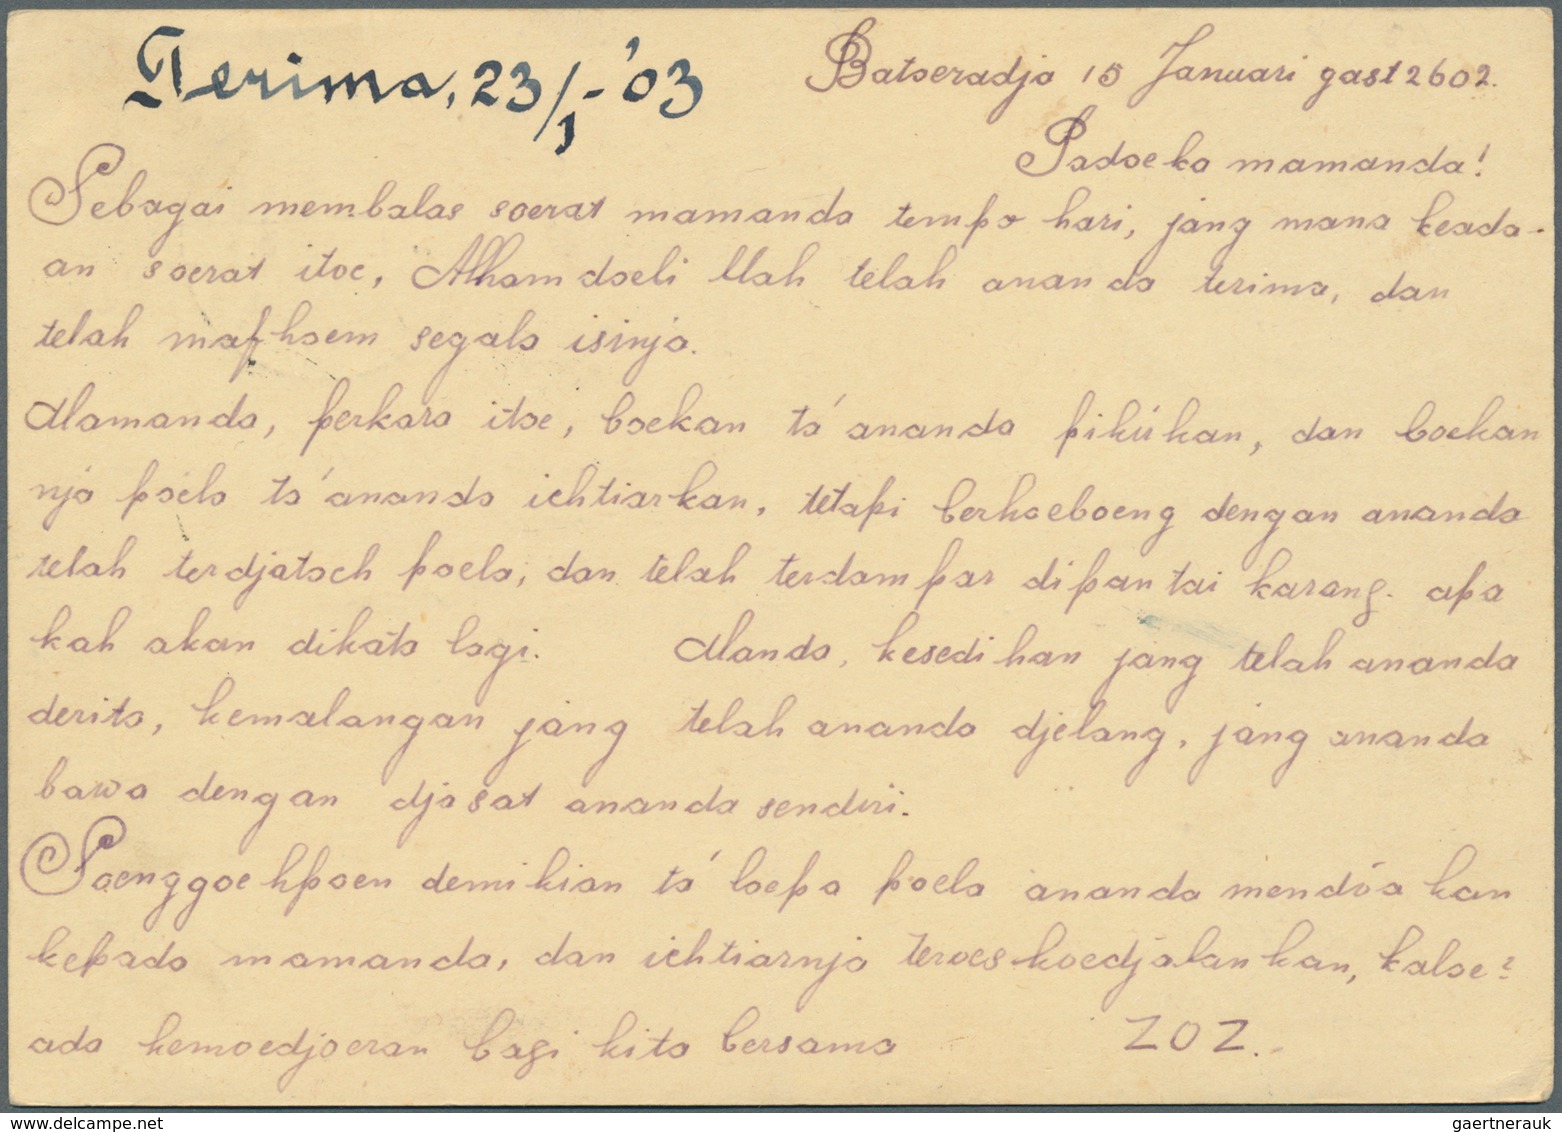 Terima, 23/1-'03
Batoeradja 15 Januari 2602.
Padoeka mamanda!
Sebagai membalas soerat mamanda tempo hari, jang mana keada-
an soerat itoe, Alhamdoeli llah telah ananda terima, dan
telah mafhoem segala isinja.
Mamanda, perkara itoe, boekan ta' ananda pikirkan, dan boekan
nja poela ta' ananda ichtiarkan, tetapi berhoeboeng dengan ananda
telah terdjatoeh poela, dan telah terdampar dipantai karang. apa
kah akan dikata lagi. Manda, kesedihan jang telah ananda
derita, kemalangan jang telah ananda djelang, jang ananda
bawa dengan djasat ananda sendiri.
Soenggoehpoen demikian ta' loepa poela ananda mendo'a kan
kepada mamanda, dan ichtiarnja teroes koedjalankan, kaloe2
ada kemoedjoeran bagi kita bersama ZOZ.
gaertnerauk